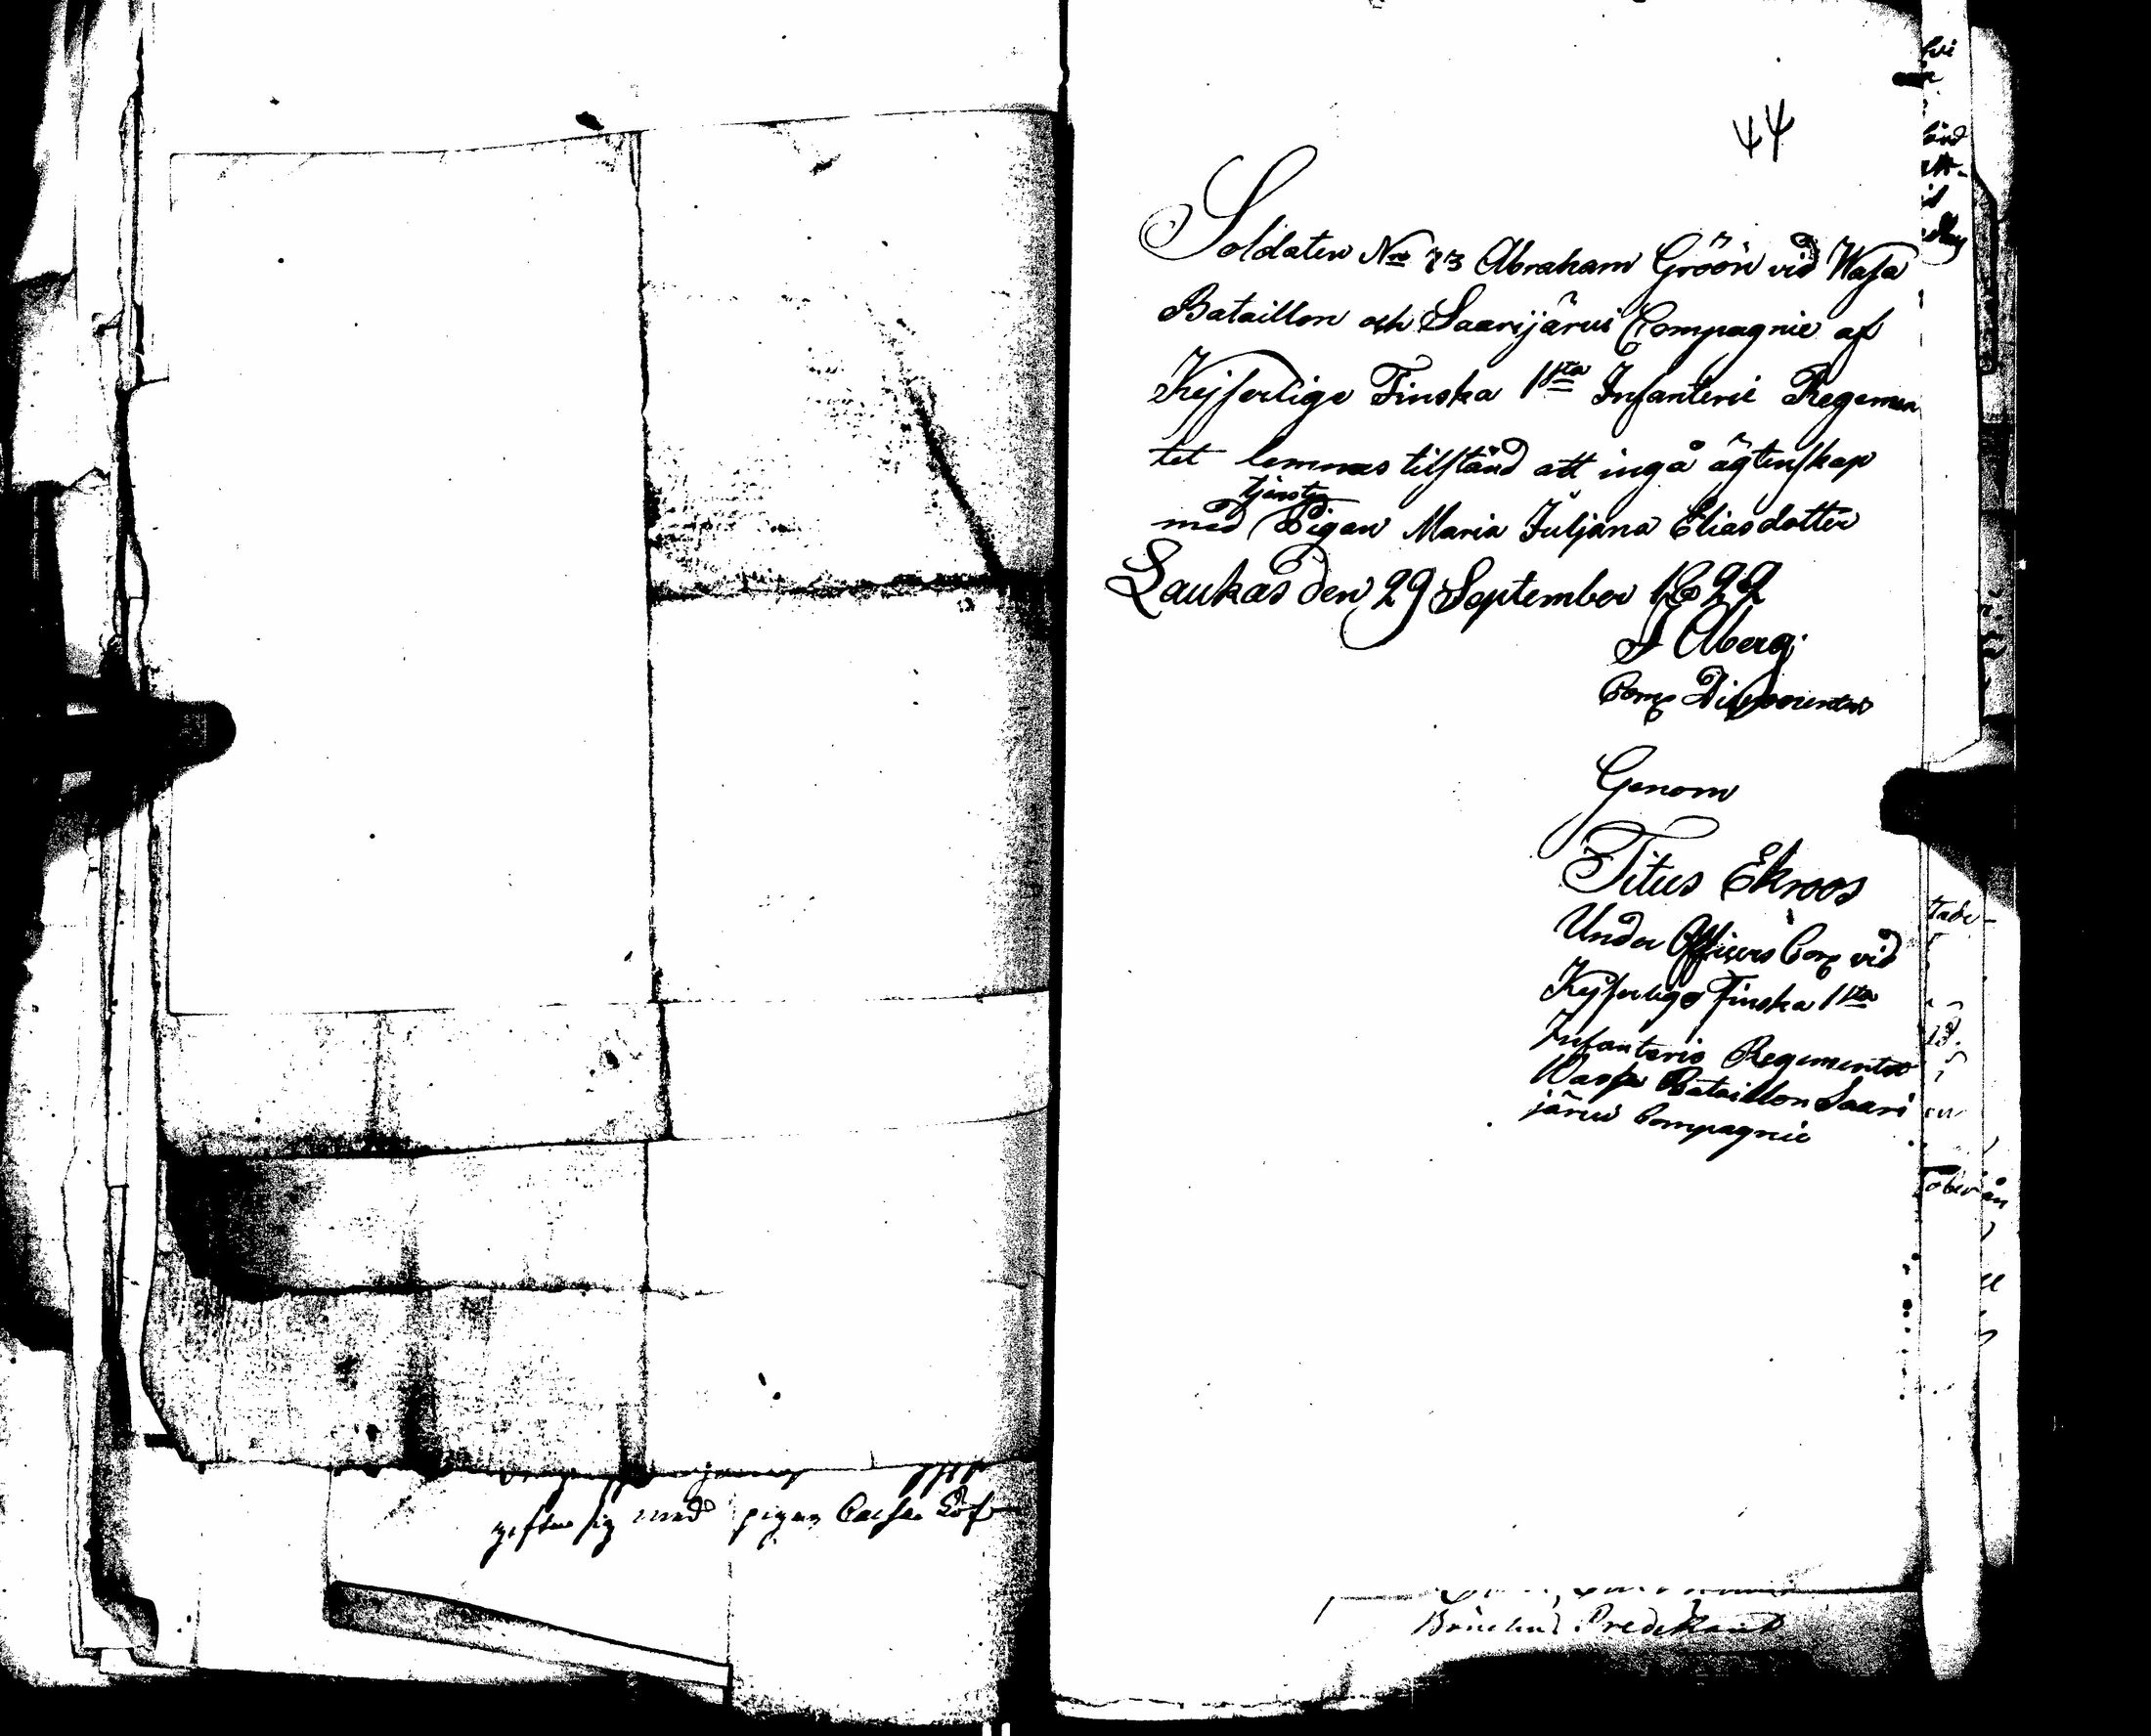 44
Soldaten No 73 Abraham Gröön vid Wasa
Bataillon och Saarijärvi Compagnie af
Kejserlige Finska 1sta Infanterie Regemen
tet lemnas tilstånd att ingå ägtenskap
tjenste
med Pigan Maria Juljana Eliasdotter
Laukas den 29 September 1822
Åberg
Comp Disponentus
Genom
Titus Ekroos
Under Officers Corp vid
Kejserlige Finska 1sta
Infanterie Regementet
Wasa Bataillon Saari
järvi Compagnie
gifta sig med pigan Caisa Löf
Predikant